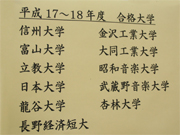 平成17～18年度 合格大学
信州大学 金沢工業大学
富山大学 大同工業大学
立教大学 昭和音楽大学
日本大学 武蔵野音楽大学
龍谷大学 杏林大学
長野経済短大